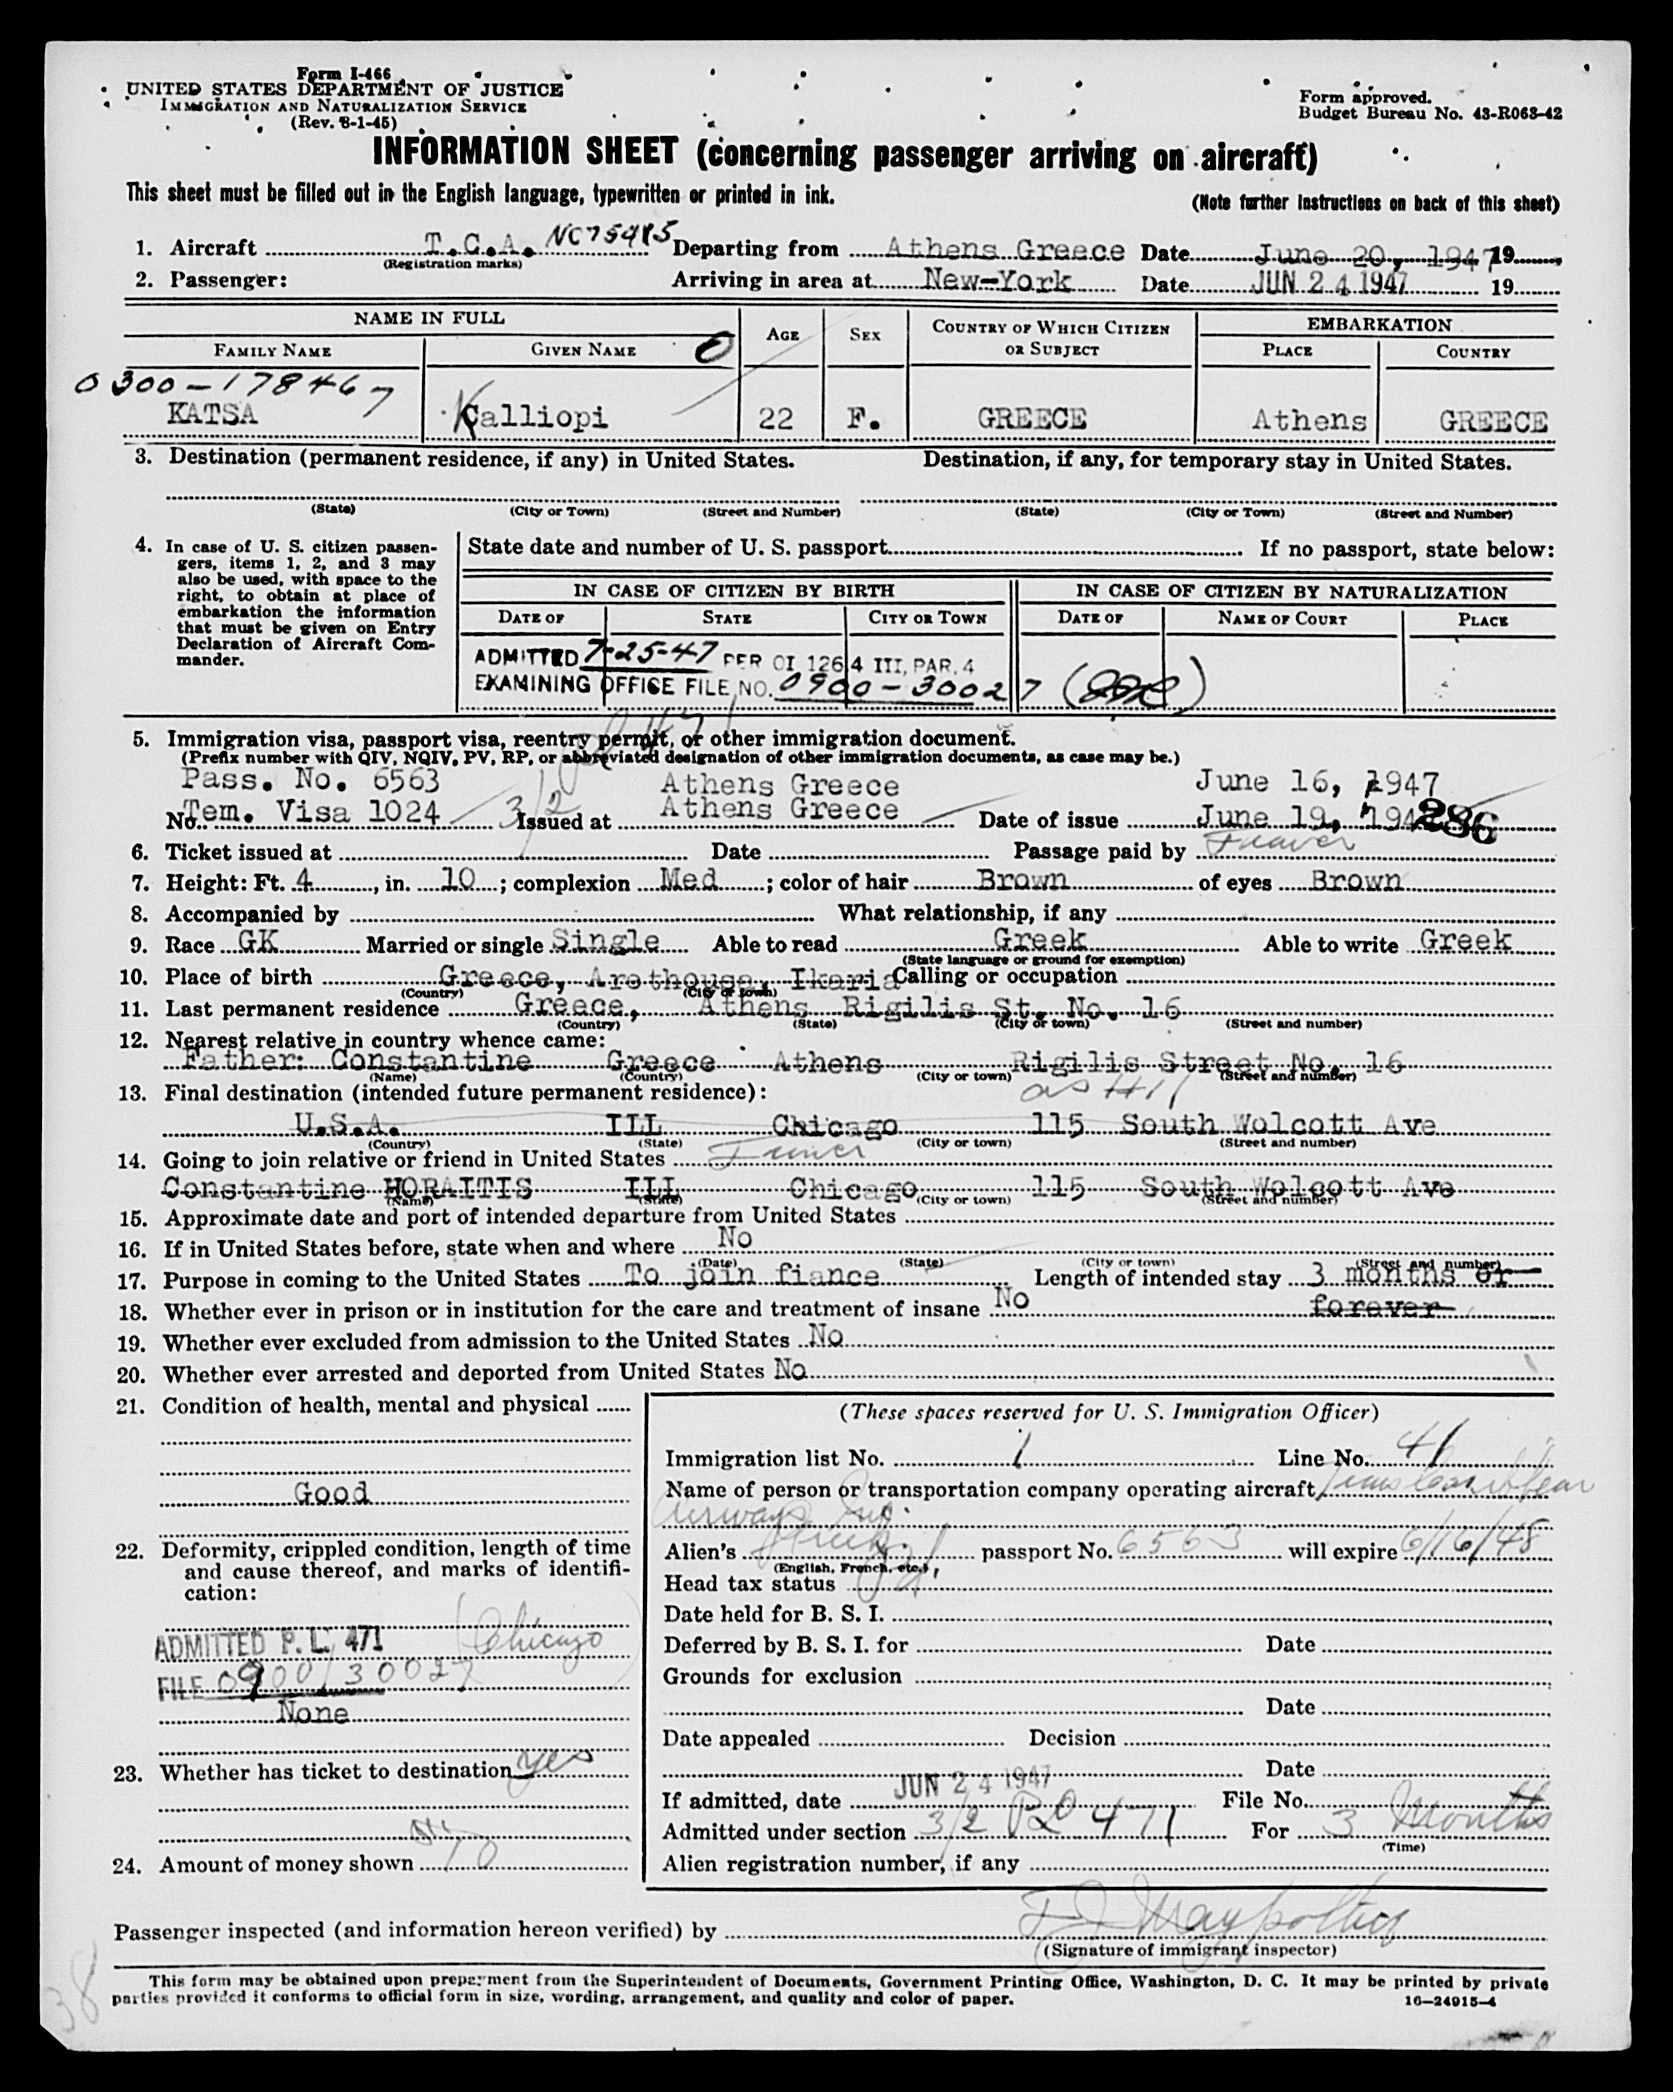 Form I-466
UNITED STATES DEPARTMENT OF JUSTICE
IMMIGRATION AND NATURALIZATION SERVICE
(Rev. 8-1-45)
Form approved.
Budget Bureau No. 43-R063-42
INFORMATION SHEET (concerning passenger arriving on aircraft)
This sheet must be filled out in the English language, typewritten or printed in ink.
(Note further instructions on back of this sheet)
1. Aircraft T.C.A. NC75415 Departing from Athens Greece Date June 20, 1947 19
(Registration marks)
2. Passenger: Arriving in area at New-York Date JUN 24 1947 19
NAME IN FULL AGE SEX COUNTRY OF WHICH CITIZEN OR SUBJECT EMBARKATION
FAMILY NAME GIVEN NAME O PLACE COUNTRY
0300-178467
KATSA Kalliopi 22 F. GREECE Athens GREECE
3. Destination (permanent residence, if any) in United States. Destination, if any, for temporary stay in United States.
(State) (City or Town) (Street and Number) (State) (City or Town) (Street and Number)
4. In case of U. S. citizen passen-
gers, items 1, 2, and 3 may
also be used, with space to the
right, to obtain at place of
embarkation the information
that must be given on Entry
Declaration of Aircraft Com-
mander.
State date and number of U. S. passport If no passport, state below:
IN CASE OF CITIZEN BY BIRTH IN CASE OF CITIZEN BY NATURALIZATION
DATE OF STATE CITY OR TOWN DATE OF NAME OF COURT PLACE
ADMITTED 7-25-47 PER OI 1264 III, PAR. 4
EXAMINING OFFICE FILE NO. 0900-30027
5. Immigration visa, passport visa, reentry permit, or other immigration document.
(Prefix number with QIV, NQIV, PV, RP, or abbreviated designation of other immigration documents, as case may be.)
Pass. No. 6563 Athens Greece June 16, 1947
No. Tem. Visa 1024 3/2 Issued at Athens Greece Date of issue June 19, 194 286
6. Ticket issued at Date Passage paid by
7. Height: Ft. 4, in. 10; complexion Med; color of hair Brown of eyes Brown
8. Accompanied by What relationship, if any
9. Race GK Married or single Single Able to read Greek Able to write Greek
(State language or ground for exemption)
10. Place of birth Greece, Arethousa, Ikaria Calling or occupation
(Country) (City or town)
11. Last permanent residence Greece, Athens Rigilis St. No. 16
(Country) (State) (City or town) (Street and number)
12. Nearest relative in country whence came:
Father: Constantine Greece Athens Rigilis Street No. 16
(Name) (Country) (City or town) (Street and number)
13. Final destination (intended future permanent residence): as #11
U.S.A. ILL Chicago 115 South Wolcott Ave
(Country) (State) (City or town) (Street and number)
14. Going to join relative or friend in United States
Constantine HORAITIS ILL Chicago 115 South Wolcott Ave
(Name) (State) (City or town) (Street and number)
15. Approximate date and port of intended departure from United States
16. If in United States before, state when and where No
(Date) (State) (City or town) (Street and number)
17. Purpose in coming to the United States To join fiance Length of intended stay 3 months or
forever
18. Whether ever in prison or in institution for the care and treatment of insane No
19. Whether ever excluded from admission to the United States No
20. Whether ever arrested and deported from United States No
21. Condition of health, mental and physical
Good
22. Deformity, crippled condition, length of time
and cause thereof, and marks of identifi-
cation:
ADMITTED P. L. 471 (Chicago)
FILE 0900/30027
None
23. Whether has ticket to destination yes
24. Amount of money shown 10
(These spaces reserved for U. S. Immigration Officer)
Immigration list No. 1 Line No. 41
Name of person or transportation company operating aircraft Trans Caribbean
Airways Inc.
Alien's Greek passport No. 6563 will expire 6/16/48
(English, French, etc.)
Head tax status
Date held for B. S. I.
Deferred by B. S. I. for Date
Grounds for exclusion
Date
Date appealed Decision
Date
If admitted, date JUN 24 1947 File No.
Admitted under section 3/2 PL 471 For 3 Months
(Time)
Alien registration number, if any
Passenger inspected (and information hereon verified) by
(Signature of immigrant inspector)
38
This form may be obtained upon prepayment from the Superintendent of Documents, Government Printing Office, Washington, D. C. It may be printed by private
parties provided it conforms to official form in size, wording, arrangement, and quality and color of paper.
16-24915-4